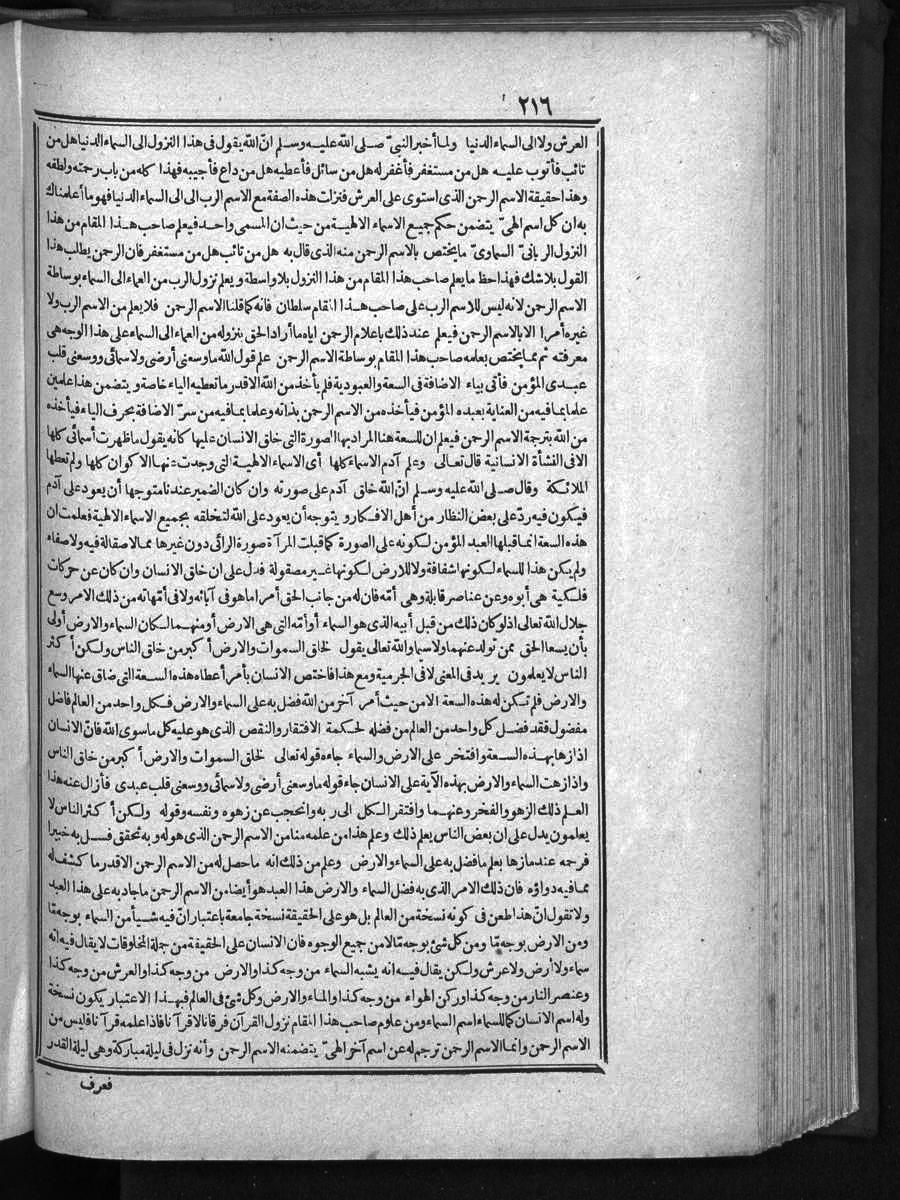 ٢١٦
العرش ولا الى السماء الدنيا ولما أخبر النبيّ صلى الله عليه وسلم انّ الله يقول فى هذا النزول الى السماء الدنيا هل من
تائب فأتوب عليه هل من مستغفر فأغفر له هل من سائل فأعطيه هل من داع فأجيبه فهذا كله من باب رحمته ولطفه
وهذا حقيقة الاسم الرحمن الذى استوى على العرش فنزلت هذه الصفة مع الاسم الرب الى الى السماء الدنيا فهو ما أعلمناك
به ان كل اسم الهىّ يتضمن حكم جميع الاسماء الالهية من حيث ان المسمى واحد فيعلم صاحب هذا المقام من هذا
النزول الربانىّ السماوىّ ما يختص بالاسم الرحمن منه الذى قال به هل من تائب هل من مستغفر فان الرحمن يطلب هذا
القول بلا شك فهذا حظ ما يعلم صاحب هذا المقام من هذا النزول بلا واسطة ويعلم نزول الرب من العماء الى السماء بوساطة
الاسم الرحمن لانه ليس للاسم الرب على صاحب هذا المقام سلطان فانه كما قلنا الاسم الرحمن فلا يعلم من الاسم الرب ولا
غيره أمرا الا بالاسم الرحمن فيعلم عند ذلك باعلام الرحمن اياه ما أراد الحق بنزوله من العماء الى السماء على هذا الوجه هى
معرفته ثم مما يختص بعلمه صاحب هذا المقام بوساطة الاسم الرحمن علم قول الله ما وسعنى أرضى ولا سمائى ووسعنى قلب
عبدى المؤمن فأتى بياء الاضافة فى السعة والعبودية فلم يأخذ من الله الا قدر ما تعطيه الياء خاصة ويتضمن هذا علمين
علما بما فيه من العناية بعبده المؤمن فيأخذه من الاسم الرحمن بذاته وعلما بما فيه من سرّ الاضافة بحرف الياء فيأخذه
من الله بترجمة الاسم الرحمن فيعلم ان للسعة هنا المراد بها الصورة التى خلق الانسان عليها كانه يقول ما ظهرت أسمائى كلها
الا فى النشأة الانسانية قال تعالى وعلم آدم الاسماء كلها أى الاسماء الالهية التى وجدت عنها الاكوان كلها ولم تعطها
الملائكة وقال صلى الله عليه وسلم انّ الله خلق آدم على صورته وان كان الضمير عندنا متوجها أن يعود على آدم
فيكون فيه ردّ على بعض النظار من أهل الافكار ويتوجه أن يعود على الله لتخلقه بجميع الاسماء الالهية فعلمت ان
هذه السعة انما قبلها العبد المؤمن لكونه على الصورة كما قبلت المرآة صورة الرائى دون غيرها مما لا صقالة فيه ولا صفاء
ولم يكن هذا للسماء لكونها شفافة ولا للارض لكونها غير مصقولة فدل على ان خلق الانسان وان كان عن حركات
فلكية هى أبوه وعن عناصر قابلة وهى أمّه فان له من جانب الحق أمرا ما هو فى آبائه ولا فى أمّهاته من ذلك الامر وسع
جلال الله تعالى اذ لو كان ذلك من قبل أبيه الذى هو السماء أو أمّه التى هى الارض أو منهما لكان السماء والارض أولى
بأن يسعا الحق ممن تولد عنهما ولا سيما والله تعالى يقول لخلق السموات والارض أكبر من خلق الناس ولكن أكثر
الناس لا يعلمون يريد فى المعنى لا فى الجرمية ومع هذا فاختص الانسان بأمر أعطاه هذه السعة التى ضاق عنها السماء
والارض فلم تكن له هذه السعة الا من حيث أمر آخر من الله فضل به على السماء والارض فكل واحد من العالم فاضل
مفضول فقد فضل كل واحد من العالم من فضله لحكمة الافتقار والنقص الذى هو عليه كل ما سوى الله فانّ الانسان
اذا زها بهذه السعة وافتخر على الارض والسماء جاءه قوله تعالى لخلق السموات والارض أكبر من خلق الناس
واذا زهت السماء والارض بهذه الآية على الانسان جاء قوله ما وسعنى أرضى ولا سمائى ووسعنى قلب عبدى فأزال عنه هذا
العلم ذلك الزهو والفخر وعنهما وافتقر الكل الى ربه وانحجب عن زهوه ونفسه وقوله ولكن أكثر الناس لا
يعلمون يدل على ان بعض الناس يعلم ذلك وعلم هذا من علمه منا من الاسم الرحمن الذى هو له وبه تحقق فسل به خبيرا
فرحمه عند ما زها بعلم ما فضل به على السماء والارض وعلم من ذلك انه ما حصل له من الاسم الرحمن الا قدر ما كشف له
مما فيه دواؤه فان ذلك الامر الذى به فضل السماء والارض هذا العبد هو أيضا من الاسم الرحمن ما جاد به على هذا العبد
ولا تقول انّ هذا طعن فى كونه نسخة من العالم بل هو على الحقيقة نسخة جامعة باعتبار انّ فيه شيأ من السماء بوجه مّا
ومن الارض بوجه مّا ومن كل شئ بوجه مّا لا من جميع الوجوه فان الانسان على الحقيقة من جملة المخلوقات لا يقال فيه انه
سماء ولا أرض ولا عرش ولكن يقال فيه انه يشبه السماء من وجه كذا والارض من وجه كذا والعرش من وجه كذا
وعنصر النار من وجه كذا وركن الهواء من وجه كذا والماء والارض وكل شئ فى العالم فبهذا الاعتبار يكون نسخة
وله اسم الانسان كما للسماء اسم السماء ومن علوم صاحب هذا المقام نزول القرآن فرقانا لا قرآنا فاذا علمه قرآنا فليس من
الاسم الرحمن وانما الاسم الرحمن ترجم له عن اسم آخر الهىّ يتضمنه الاسم الرحمن وأنه نزل فى ليلة مباركة وهى ليلة القدر
فعرف